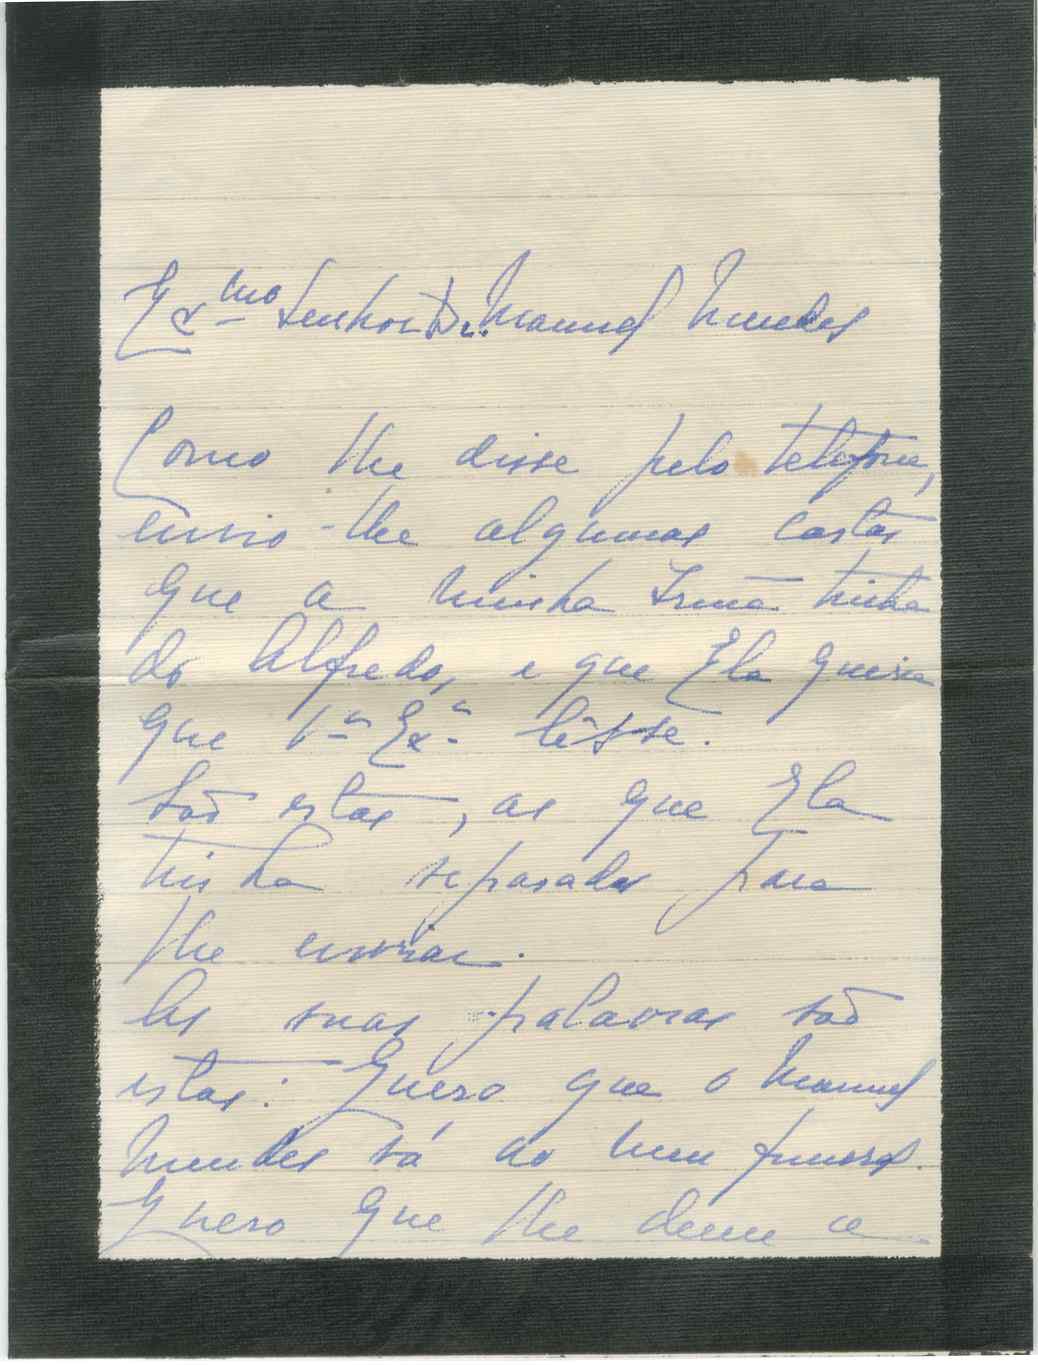 Exmo Senhor Dr. Manuel Mendes
Como lhe disse pelo telefone,
envio-lhe algumas cartas
que a minha Irmã tinha
do Alfredo, e que Ela queria
que V.ª Ex.ª lêsse.
São estas, as que Ela
tinha separadas para
lhe enviar.
As suas palavras são
estas: Quero que o Manuel
Mendes vá ao meu funeral.
Quero que lhe deem a